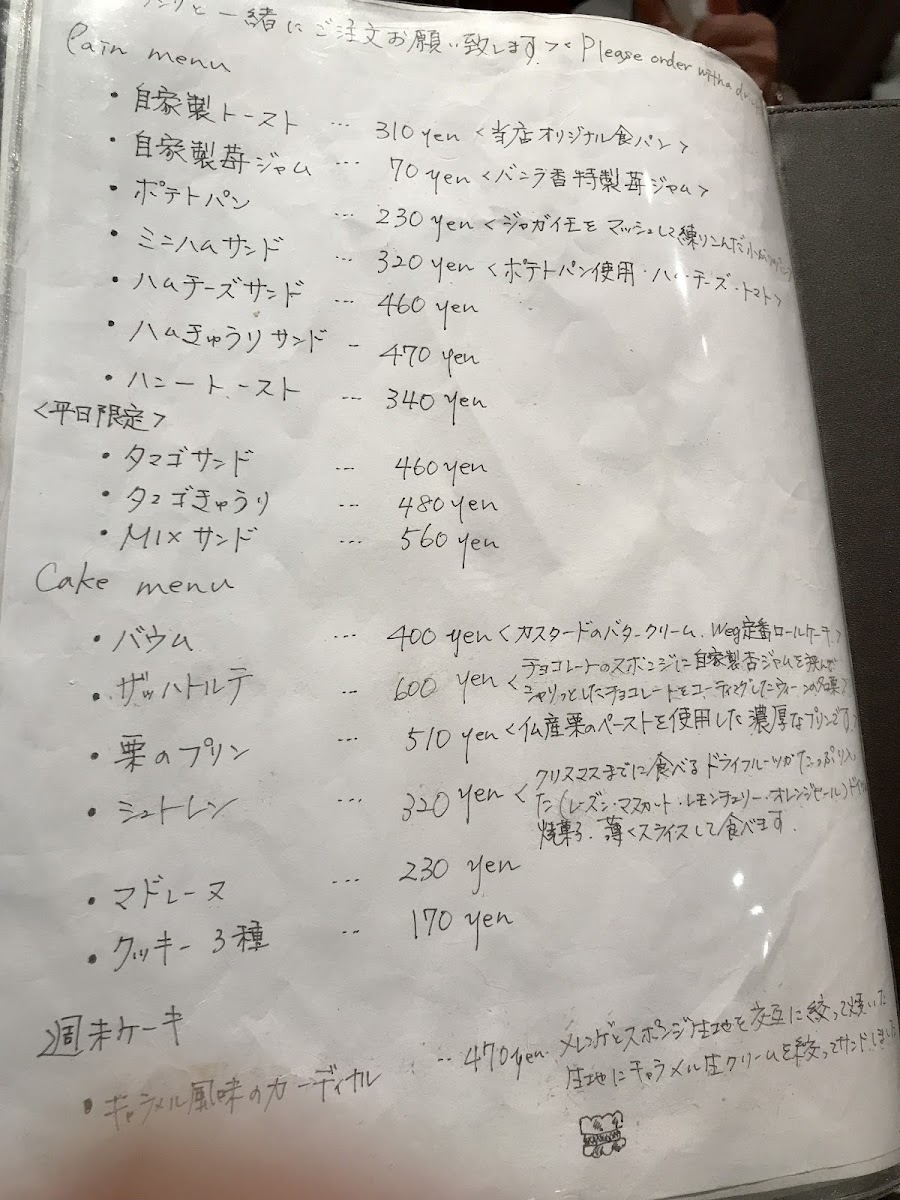 と一緒にご注文お願い致します >< Please order with a
Pain menu
・自家製トースト … 310 yen <当店オリジナル食パン>
・自家製苺ジャム … 70 yen <バニラ香特製苺ジャム>
・ポテトパン … 230 yen <ジャガイモをマッシュして練りこんだ
・ミニハムサンド … 320 yen <ポテトパン使用・ハム・チーズ・トマト>
・ハムチーズサンド … 460 yen
・ハムきゅうりサンド - 470 yen
・ハニートースト … 340 yen
<平日限定>
・タマゴサンド … 460 yen
・タマゴきゅうり … 480 yen
・MIXサンド … 560 yen
Cake menu
・バウム … 400 yen <カスタードのバタークリーム、Weg定番ロールケーキ>
・ザッハトルテ … 600 yen <チョコレートのスポンジに自家製杏ジャムを挟んだ
シャリっとしたチョコレートをコーティングしたウィーンの名菓>
・栗のプリン … 510 yen <仏産栗のペーストを使用した濃厚なプリンです>
・シュトレン … 320 yen <クリスマスまでに食べるドライフルーツがたっぷり入っ
た(レーズン・マスカット・レモンチェリー・オレンジピール)ドイツ
焼菓子。薄くスライスして食べます。
・マドレーヌ … 230 yen
・クッキー3種 … 170 yen
週末ケーキ
・キャラメル風味のカーディナル … 470 yen メレンゲとスポンジ生地を交互に絞って焼いた
生地にキャラメル生クリームを絞ってサンドしました